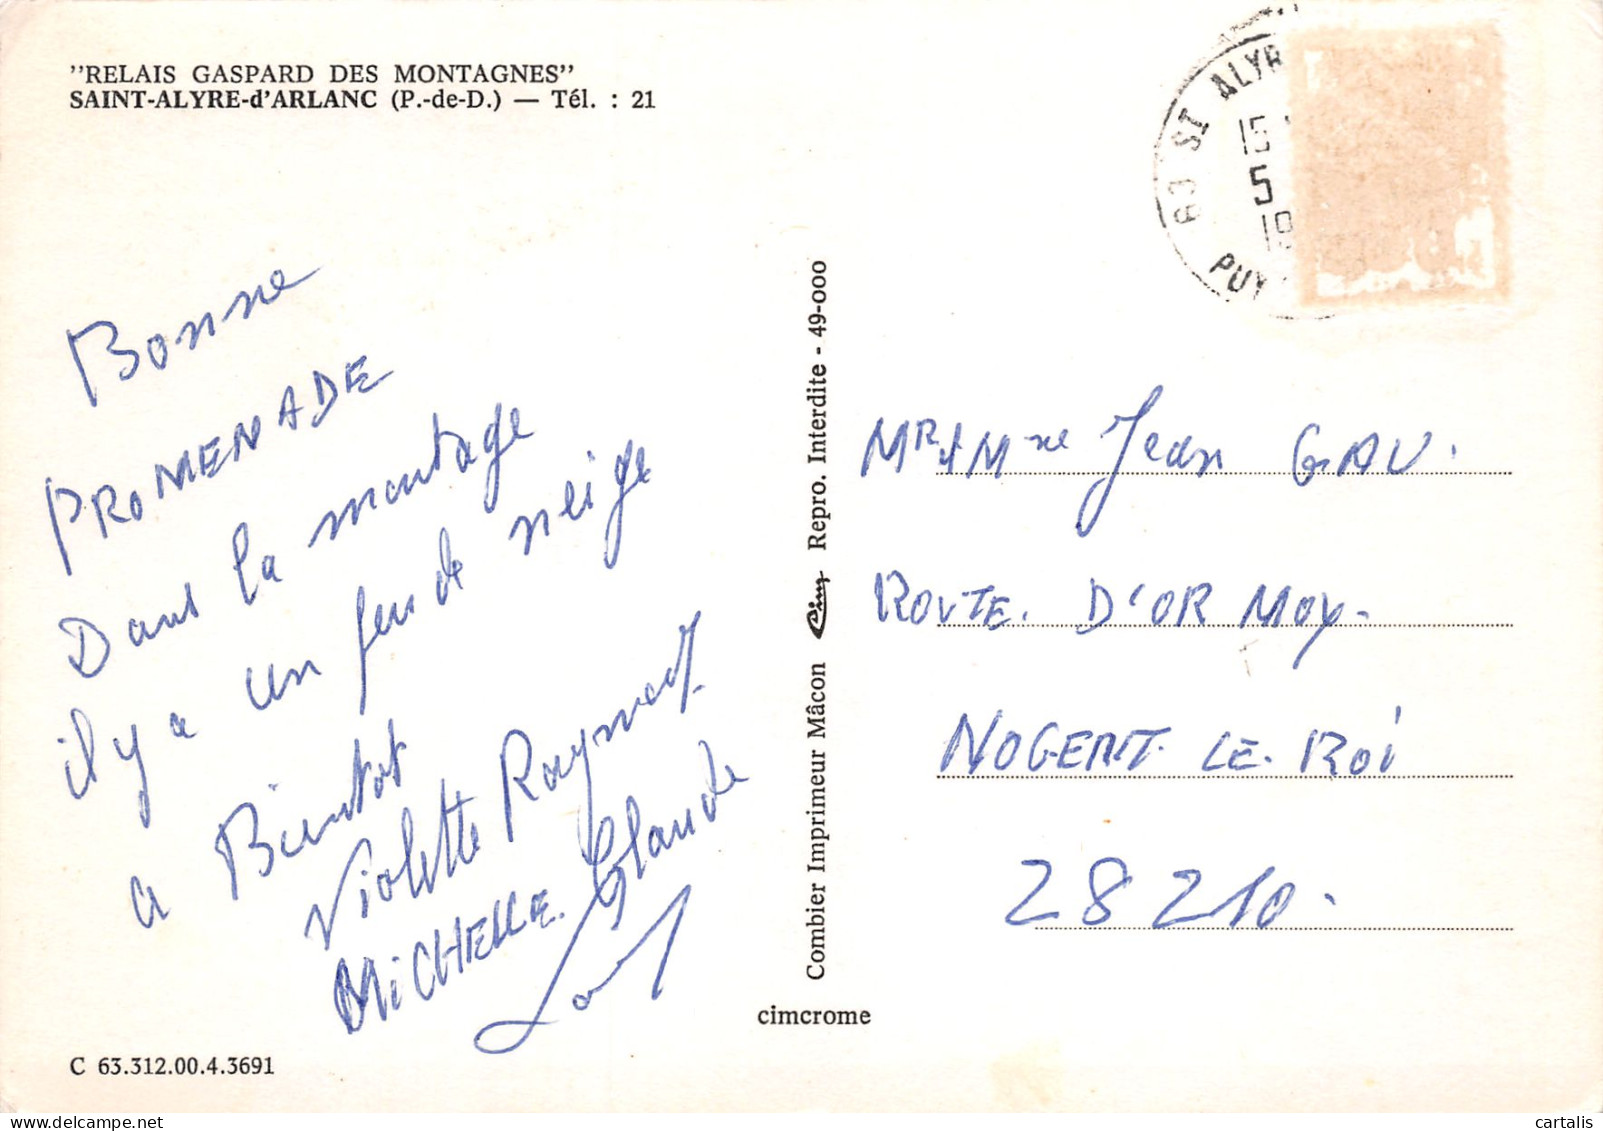 "RELAIS GASPARD DES MONTAGNES"
SAINT-ALYRE-d'ARLANC (P.-de-D.) — Tél. : 21
63 ST ALYR
15
5
19
PUY
Bonne
PROMENADE
Dans la montage
il y a un peu de neige
a Bientot
Violette Raymond
MICHELLE. Claude
C 63.312.00.4.3691
Combier Imprimeur Mâcon Cim Repro. Interdite - 49-000
cimcrome
MR & Mme Jean GAU.
ROUTE. D'ORMOY-
NOGENT. LE. Roi
28210.
cartalis